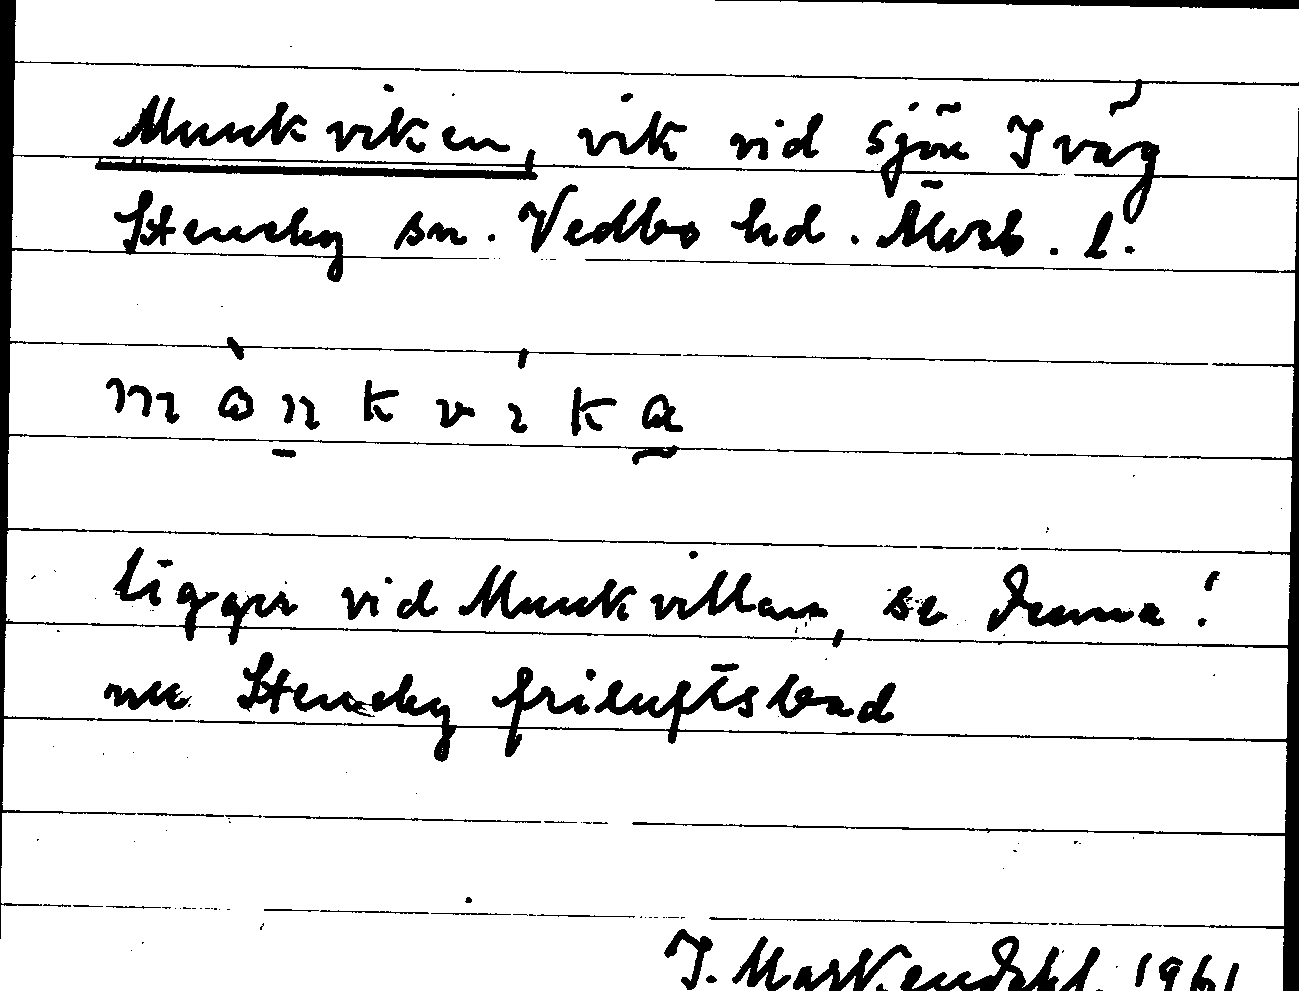 Munkviken, vik vid sjön Iväg
Steneby sn. Vedbo hd. Älvsb. l.
mònkvíka
ligger vid Munkvillan, se denna!
nu Steneby friluftsbad
J. Markendahl 1961